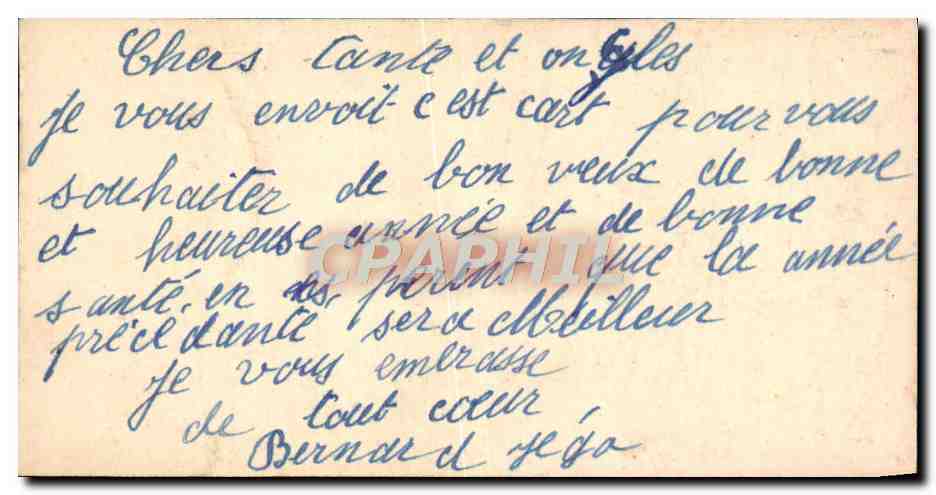 Chers tante et oncles
Je vous envoit c est cart pour vous
souhaiter de bon veux de bonne
et heureuse année et de bonne
CPAPHIL
santé. en es, perent que la année
précédante sera Meilleur
Je vous embrasse
de tout cœur,
Bernard Jégo